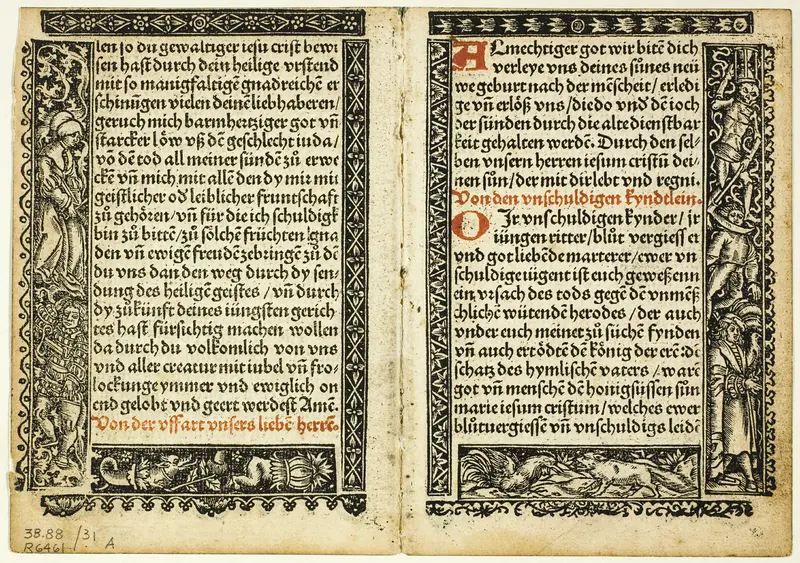 len so du gewaltiger iesu crist bewi
sen hast durch dein heilige vrstend
mit so manigfaltigē gnadreichē er
schinūgen vielen deinē liebhaberen/
geruch mich barmhertziger got vn̄
starcker löw vß dē geschlecht iuda/
vō dē tod all meiner sündē zů erwe
ckē vn̄ mich mit allē den dy mir mi
geistlicher od leiblicher fruntschaft
zů gehören/ vn̄ für die ich schuldigk
bin zů bittē/ zů sölchē früchten gna
den vn̄ ewigē freudē zebringē zů dē
du vns dan den weg durch dy sen-
dung des heiligē geistes / vn̄ durch
dy zůkunft deines iüngsten gerich
tes hast fürsichtig machen wollen
da durch du volkomlich von vns
vnd aller creatur mit iubel vn̄ fro-
lockunge ymmer vnd ewiglich on
end gelobt vnd geert werdest Amē.
Von der vffart vnsers liebē herrē.
ALmechtiger got wir bitē dich
verleye vns deines sůnes neü
we geburt nach der mēscheit/ erledi
ge vn̄ erlöß vns / die do vnd dē ioch
der sünden durch die alte dienstbar
keit gehalten werdē. Durch den sel-
ben vnsern herren iesum cristū dei-
nen sůn/ der mit dir lebt vnd regni.
Von den vnschuldigen kyndtlein.
OIr vnschuldigen kynder/ ir
iüngen ritter/ blůt vergiess et
vnd got liebende marterer/ ewer vn
schuldige iügent ist euch geweßenn
ein vrsach des tods gegē dē vnmēß
chlichē wütendē herodes / der auch
vnder euch meinet zů sůchē fynden
vn̄ auch ertödtē dē könig der erē: di
schatz des hymlischē vaters / warē
got vn̄ menschē dē honigsüssen sůn
marie iesum cristum/ welches ewer
blůtuergiessē vn̄ vnschuldigs leidē
38.88 /31
R6461 A